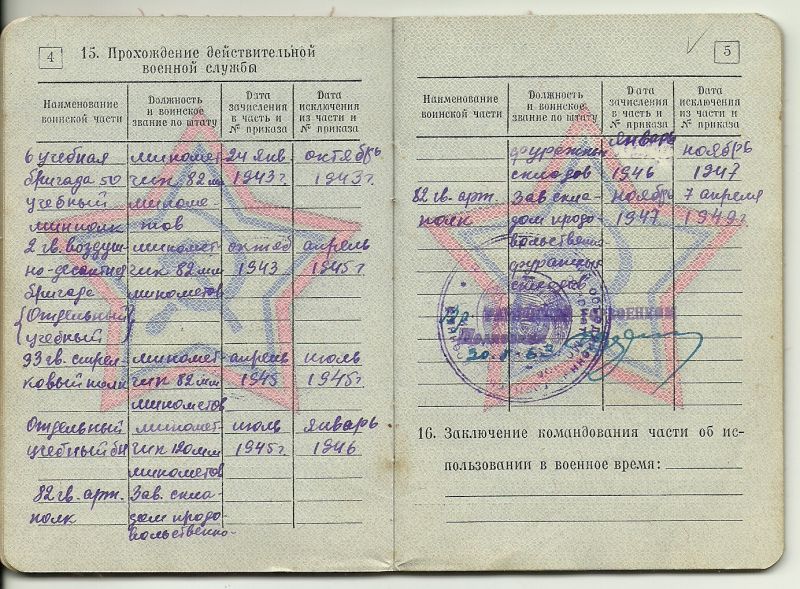 4
15. Прохождение действительной
военной службы
Наименование
воинской части
Должность
и воинское
звание по штату
Дата
зачисления
в часть и
№ приказа
Дата
исключения
из части и
№ приказа
6 учебная миномет- 24 янв. октябрь
бригада 50 чик 82 мм 1943 г. 1943 г.
учебный миноме-
минполк тов
2 гв. воздуш- миномет- октяб апрель
но-десантная чик 82 мм 1943 1945 г.
бригада минометов
(Отдельный
учебный)
93 гв. стрел- миномет- апрель июль
ковый полк чик 82 мм 1945 1945 г.
минометов
Отдельный миномет- июль январь
учебный бн чик 120 мм 1945 г. 1946
минометов
82 гв. арт. Зав. скла-
полк дом продо-
вольственно-
5
Наименование
воинской части
Должность
и воинское
звание по штату
Дата
зачисления
в часть и
№ приказа
Дата
исключения
из части и
№ приказа
фуражных январь ноябрь
складов 1946 1947
82 гв. арт. Зав скла- ноябрь 7 апреля
полк дом продо- 1947 1949 г.
вольственно
фуражных
складов
16. Заключение командования части об ис-
пользовании в военное время: